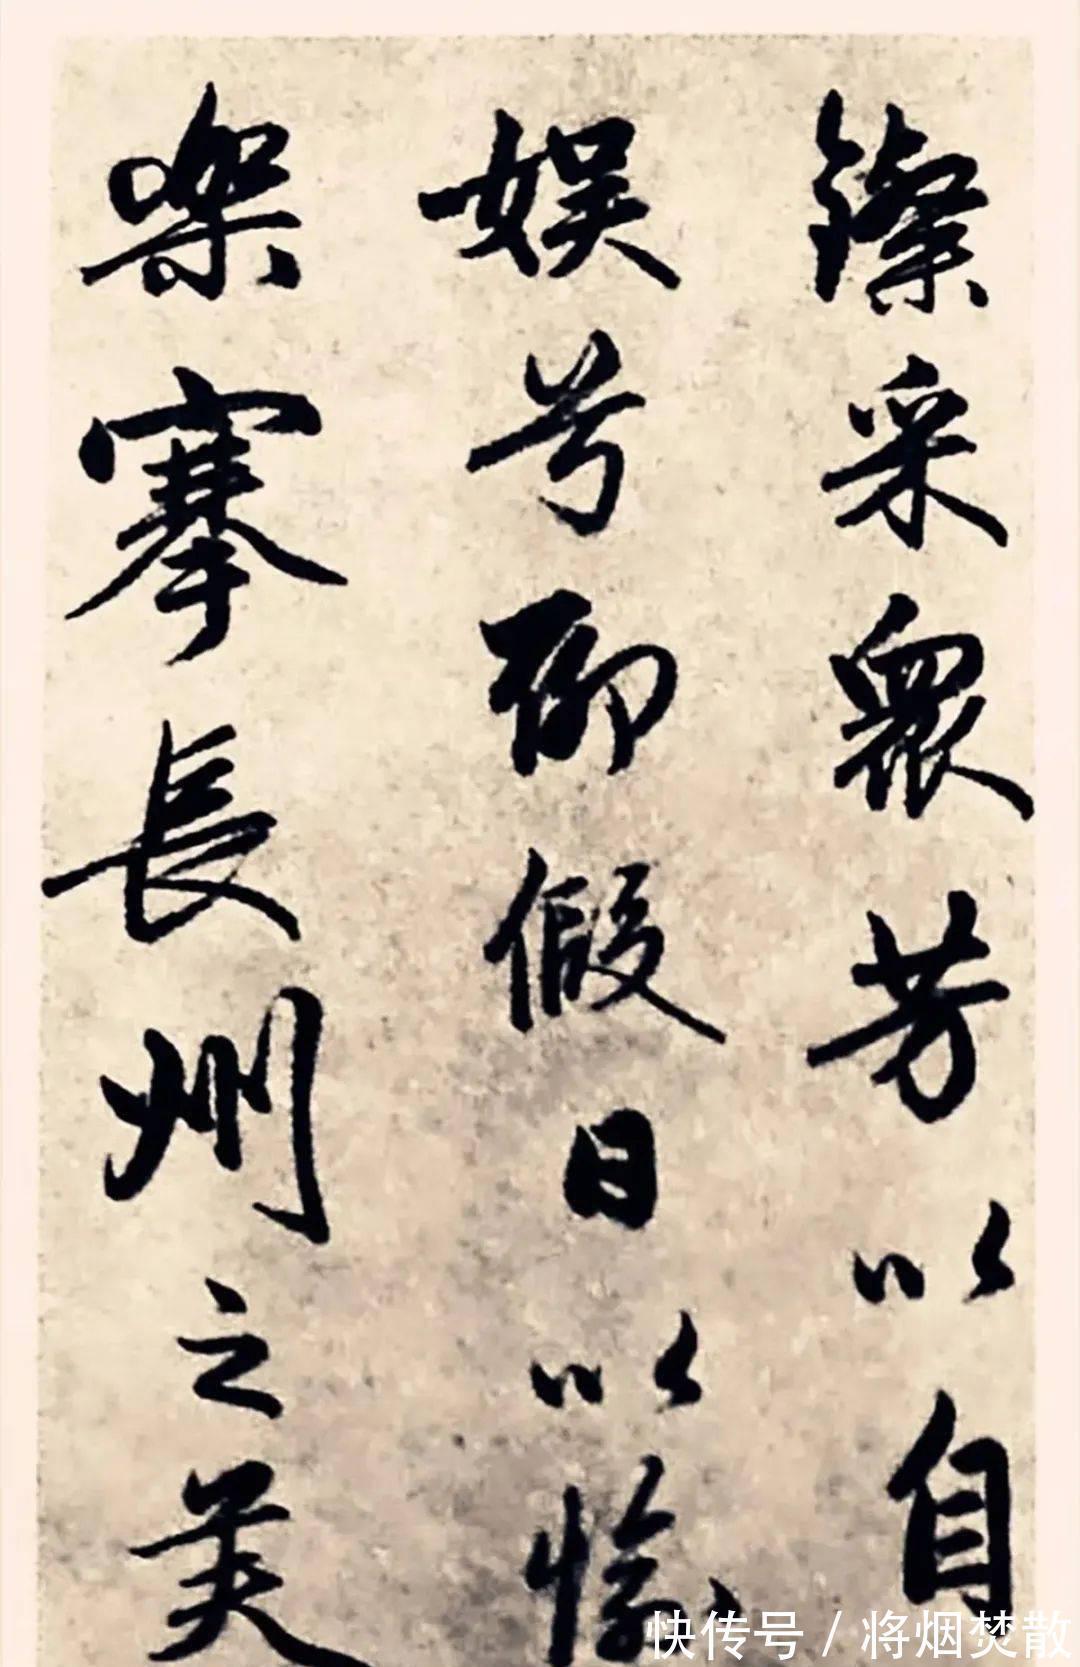 鑠采眾芳以自
娱兮聊假日以愉
樂搴長州之美
快传号/将烟焚散